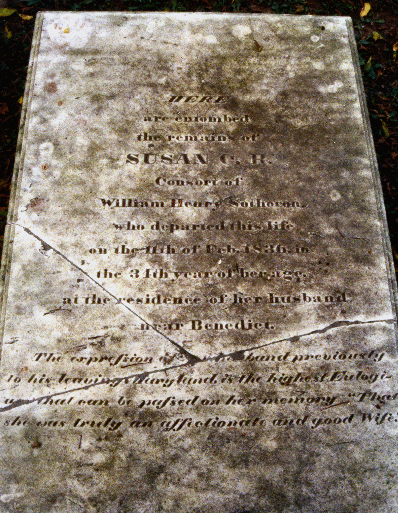 HERE
are entombed
the remains of
SUSAN C. R.
Consort of
William Henry Sothoron,
who departed this life
on the 11th of Feb. 1836, in
the 34th year of her age,
at the residence of her husband
near Benedict.
The expression of husband previously
to his leaving Maryland, is the highest Eulogi-
um that can be passed on her memory "That
she was truly an affectionate and good Wife.